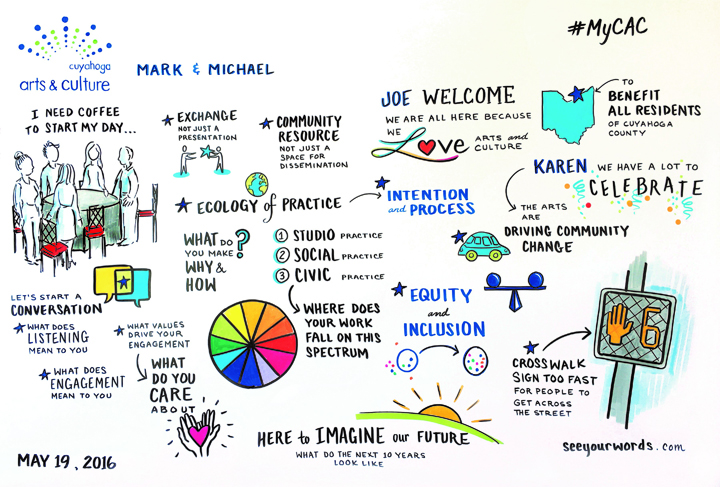 cuyahoga
arts & culture
MARK & MICHAEL
#MyCAC
I NEED COFFEE
TO START MY DAY...
★ EXCHANGE
NOT JUST A
PRESENTATION
★ COMMUNITY
RESOURCE
NOT JUST A
SPACE FOR
DISSEMINATION
★ ECOLOGY of PRACTICE
★ INTENTION
and PROCESS
WHAT DO
YOU MAKE
WHY &
HOW
?
1 STUDIO PRACTICE
2 SOCIAL PRACTICE
3 CIVIC PRACTICE
WHERE DOES
YOUR WORK
FALL ON THIS
SPECTRUM
LET'S START A
CONVERSATION
★ WHAT DOES
LISTENING
MEAN TO YOU
★ WHAT DOES
ENGAGEMENT
MEAN TO YOU
★ WHAT VALUES
DRIVE YOUR
ENGAGEMENT
WHAT
DO YOU
CARE
ABOUT
JOE WELCOME
WE ARE ALL HERE BECAUSE
WE Love ARTS and
CULTURE
TO
BENEFIT
ALL RESIDENTS
OF CUYAHOGA
COUNTY
KAREN WE HAVE A LOT TO
CELEBRATE
THE ARTS
ARE
DRIVING COMMUNITY
CHANGE
★ EQUITY
and
INCLUSION
★ CROSSWALK
SIGN TOO FAST
FOR PEOPLE TO
GET ACROSS
THE STREET
6
HERE to IMAGINE our FUTURE
WHAT DO THE NEXT 10 YEARS
LOOK LIKE
MAY 19, 2016
seeyourwords.com